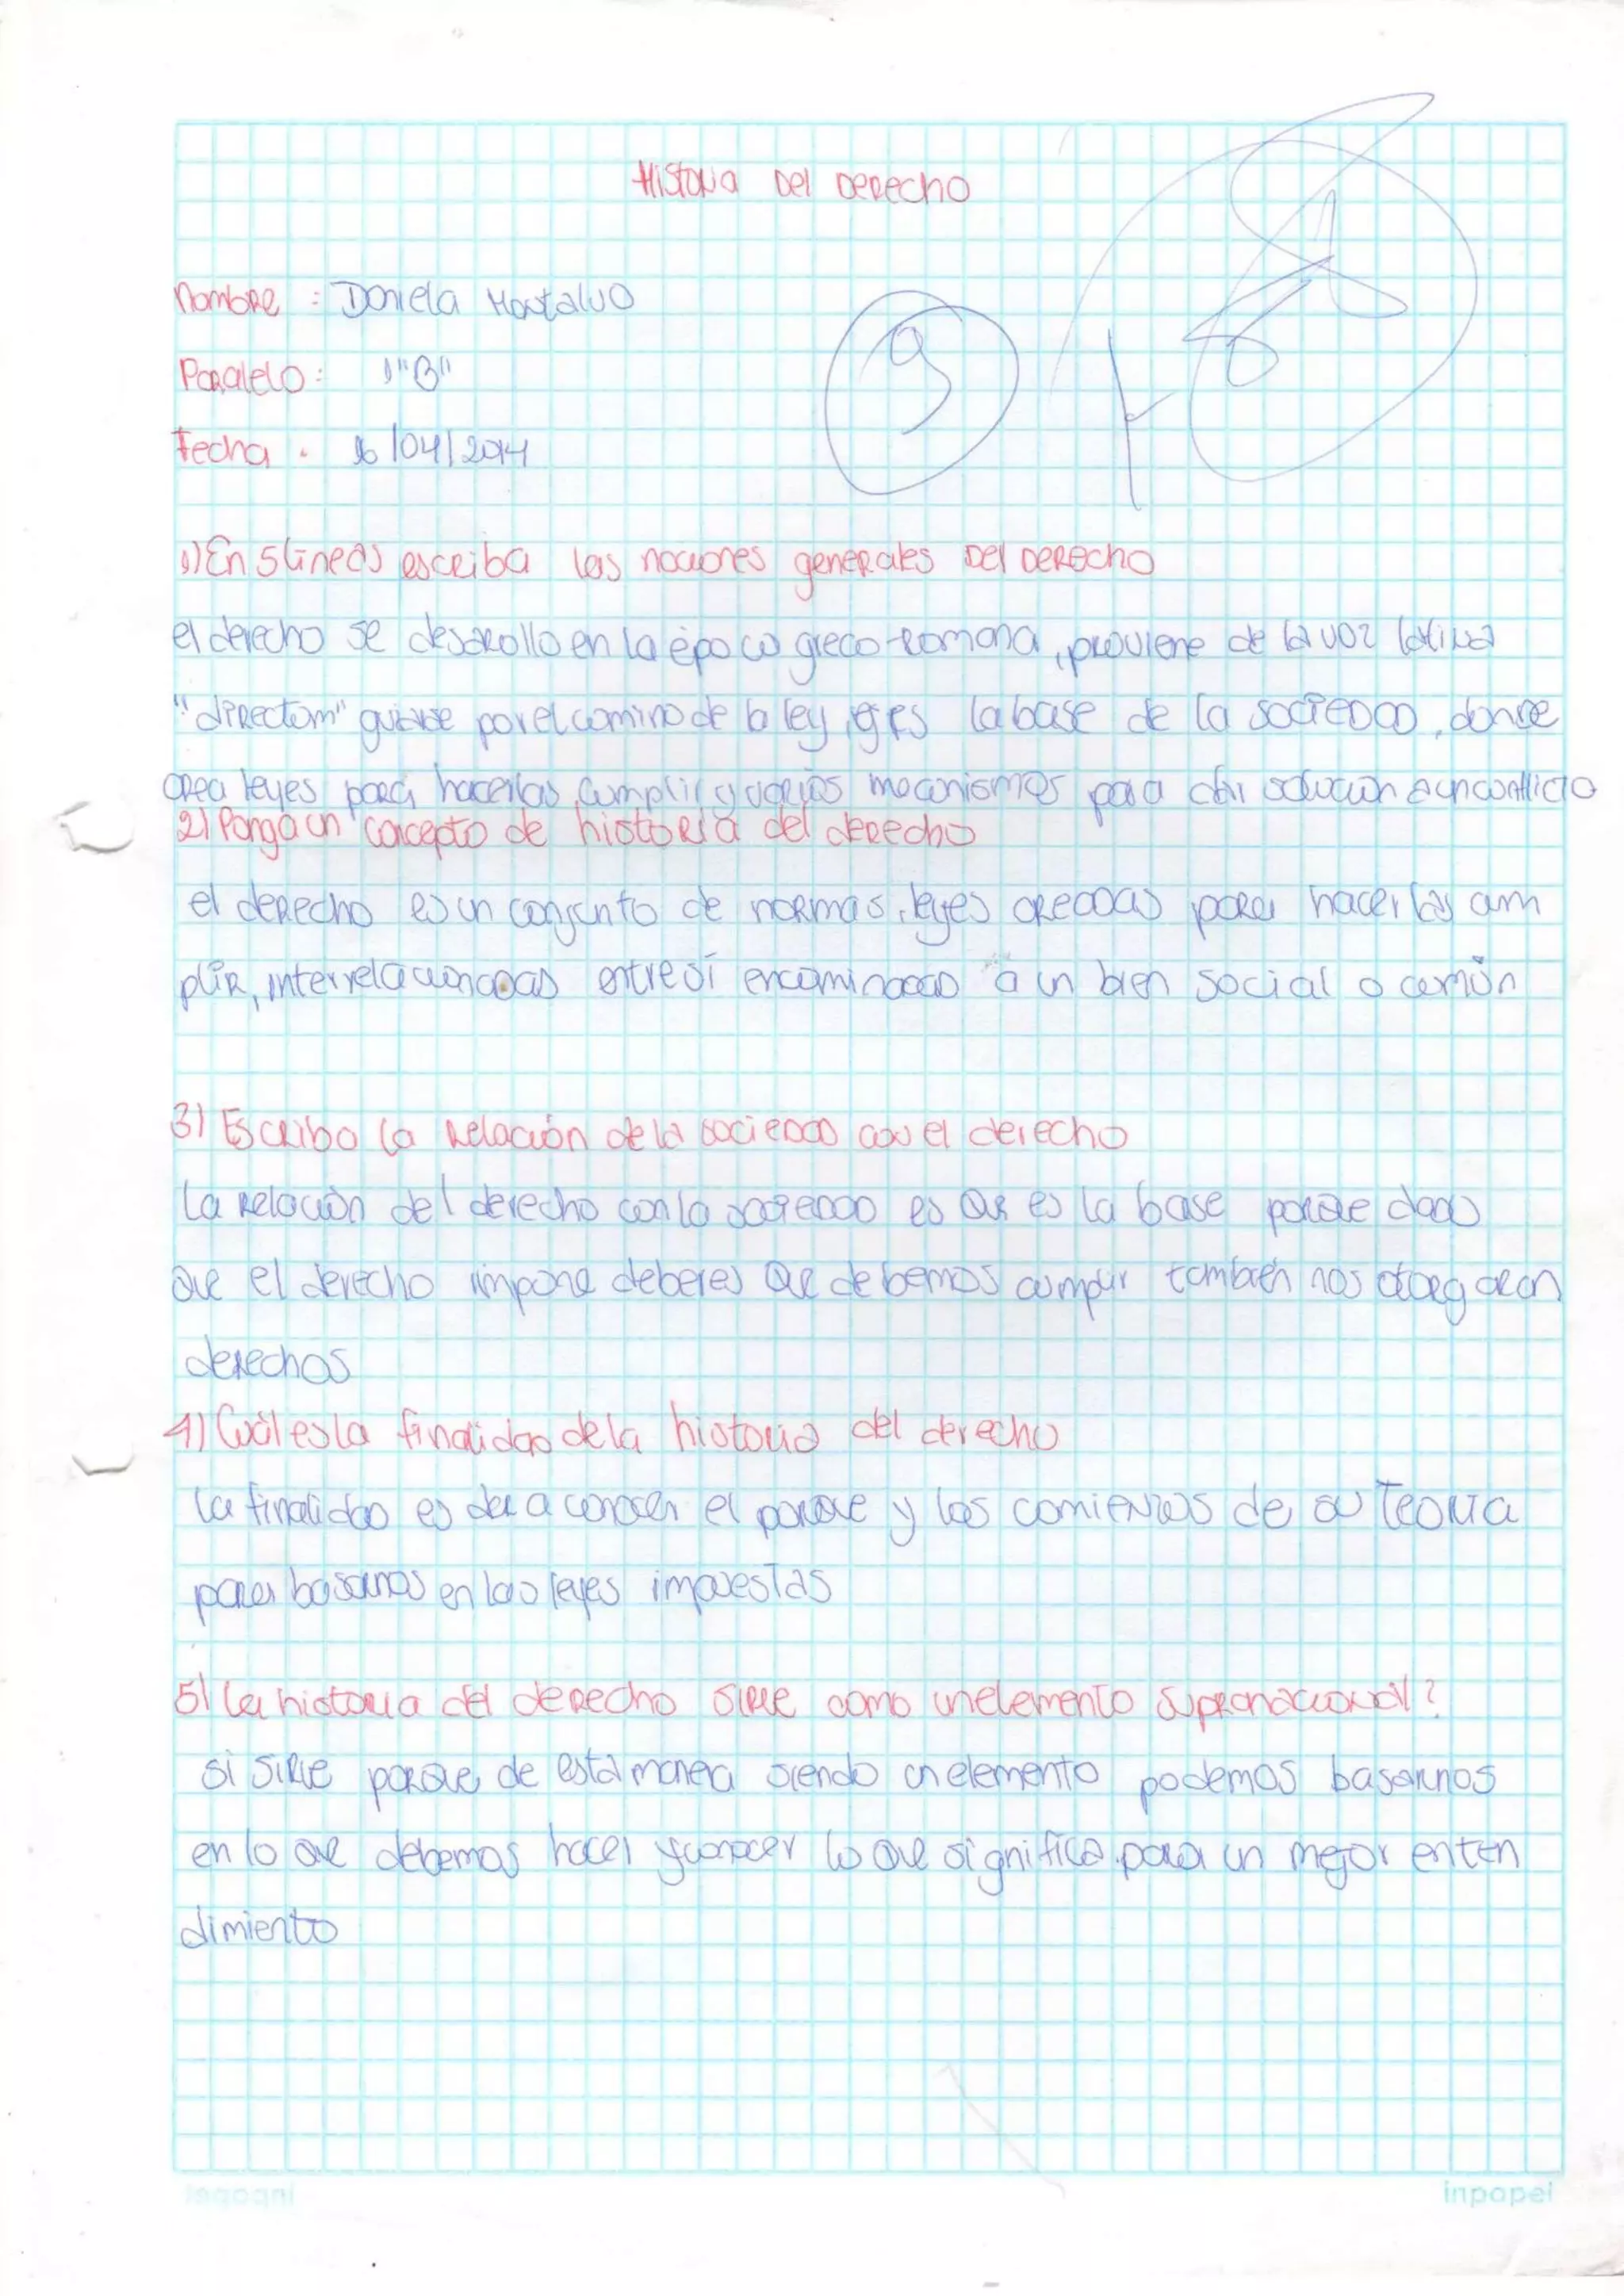 Historia Del Derecho
9
Nombre : Daniela Montalvo
Paralelo: 1"B"
Fecha . 16/04/2014
1) En 5 líneas escriba las nociones generales Del Derecho
el derecho se desarollo en la época greco-romana, proviene de la voz latina
"directom" guiarse por el camino de la ley, es la base de la sociedad, donde
crea leyes para hacerlas cumplir y varios mecanismos para dar solucion a un conflicto
2) Ponga un concepto de historia del derecho
el derecho es un conjunto de normas, leyes creadas para hacerlas cum
plir, interrelacionadas entre sí encaminadas a un bien social o común
3) Escriba la relación de la sociedad con el derecho
La relación del derecho con la sociedad es que es la base porque dado
que el derecho impone deberes que debemos cumplir también nos otorgaran
derechos
4) Cuál es la finalidad de la historia del derecho
la finalidad es dar a conocer el porque y los comienzos de su teoria
para basarnos en las leyes impuestas
5) La historia del derecho sirve como un elemento supranacional?
si sirve porque de esta manera siendo un elemento podemos basarnos
en lo que debemos hacer y conocer lo que significa para un mejor enten
dimiento
inpapel